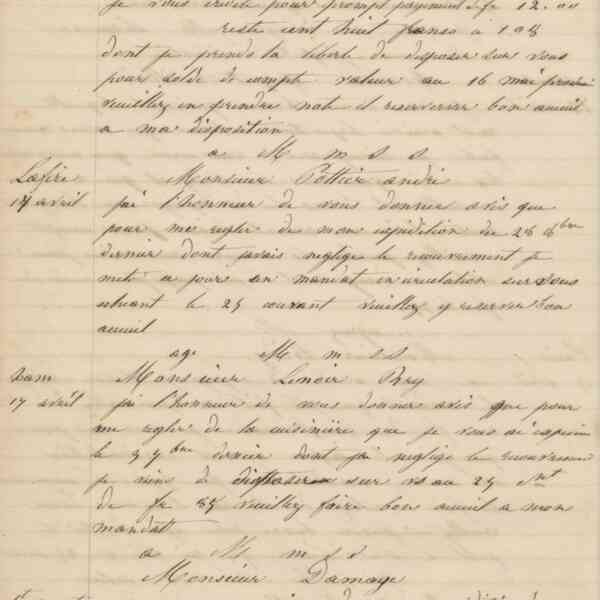 je vous crédite pour prompt payement de fr 12.00
reste cent huit francs à 108
dont je prends la liberté de disposer sur vous
pour solde de compte valeur au 16 mai prochain
veuillez en prendre note et reserver bon acueil
a ma disposition
a M m s s
Lafère
17 avril
Monsieur Pottier andré
jai l'honneur de vous donner avis que
pour me regler de mon expédition du 26 8bre
dernier dont javais neglige le recouvrement je
mets a jour un mandat en circulation sur vous
échéant le 25 courant veuillez y reserver bon
acueil
ag. M m s s
ham
17 avril
Monsieur Lenoir Rey
jai l'honneur de vous donner avis que pour
me regler de la cuisinière que je vous ai expédié
le 3 7bre dernier dont jai neglige le recouvrement
je viens de disposer sur vs au 25 Ct
de fr 85 veuillez faire bon acueil a mon
mandat
a M m s s
Monsieur Damaye